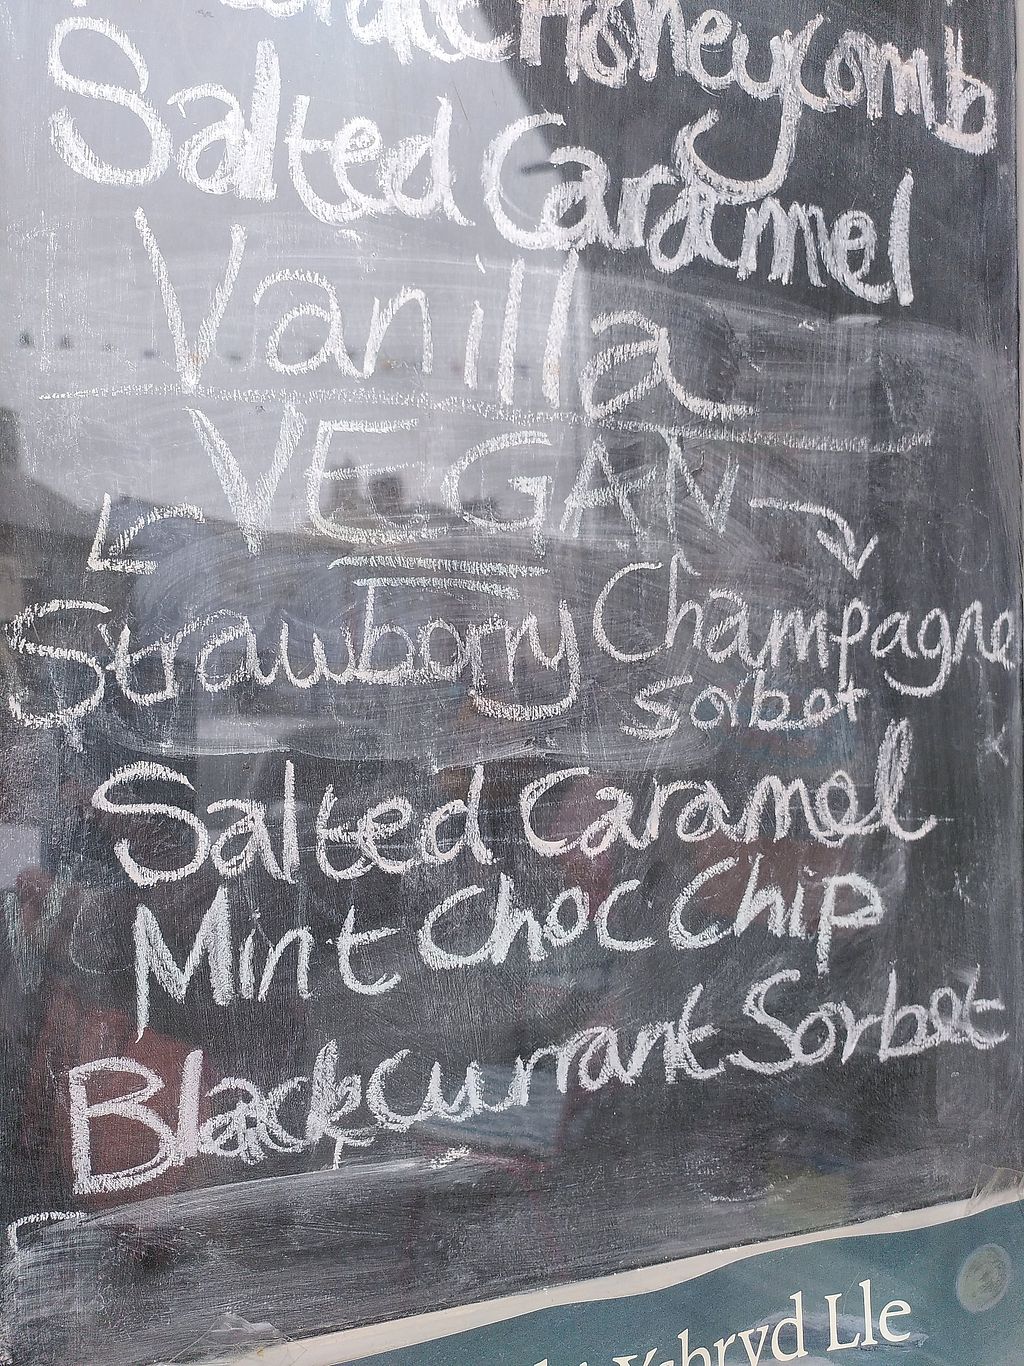 Honeycomb
Salted Caramel
Vanilla
VEGAN
Strawberry Champagne
sorbet
Salted Caramel
Mint Choc Chip
Blackcurrant Sorbet
Ysbryd Lle